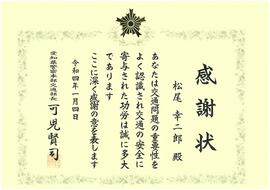 感謝状
松尾 幸二郎 殿
あなたは交通問題の重要性を
よく認識され交通の安全に
寄与された功労は誠に多大
であります
ここに深く感謝の意を表します
令和四年一月四日
愛知県警察本部交通部長
可児賢司